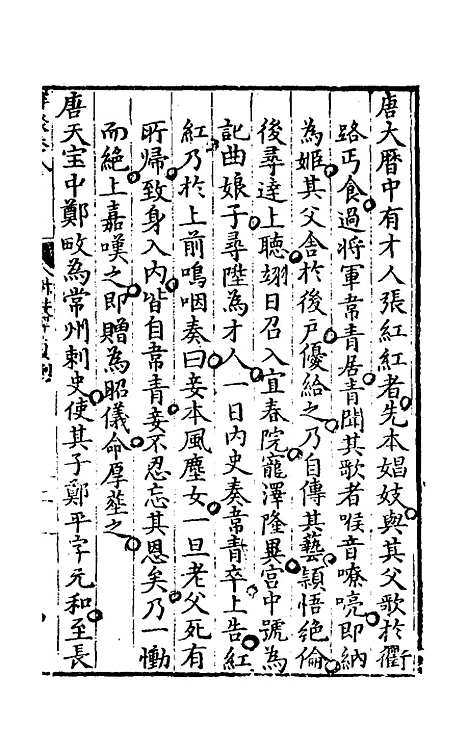 唐大曆中有才人張紅紅者先本娼妓與其父歌於衢
路丐食過將軍韋青居青聞其歌者喉音嘹亮即納
為姬其父舍於後戶優給之乃自傳其藝頴悟絕倫
後尋達上聽翊日召入宜春院寵澤隆異宮中號為
記曲娘子尋陞為才人一日內史奏韋青卒上告紅
紅乃於上前嗚咽奏曰妾本風塵女一旦老父死有
所歸致身入內皆自韋青妾不忍忘其恩矣乃一慟
而絕上嘉嘆之即贈為昭儀命厚葬之
唐天宝中鄭畋為常州刺史使其子鄭平字元和至長